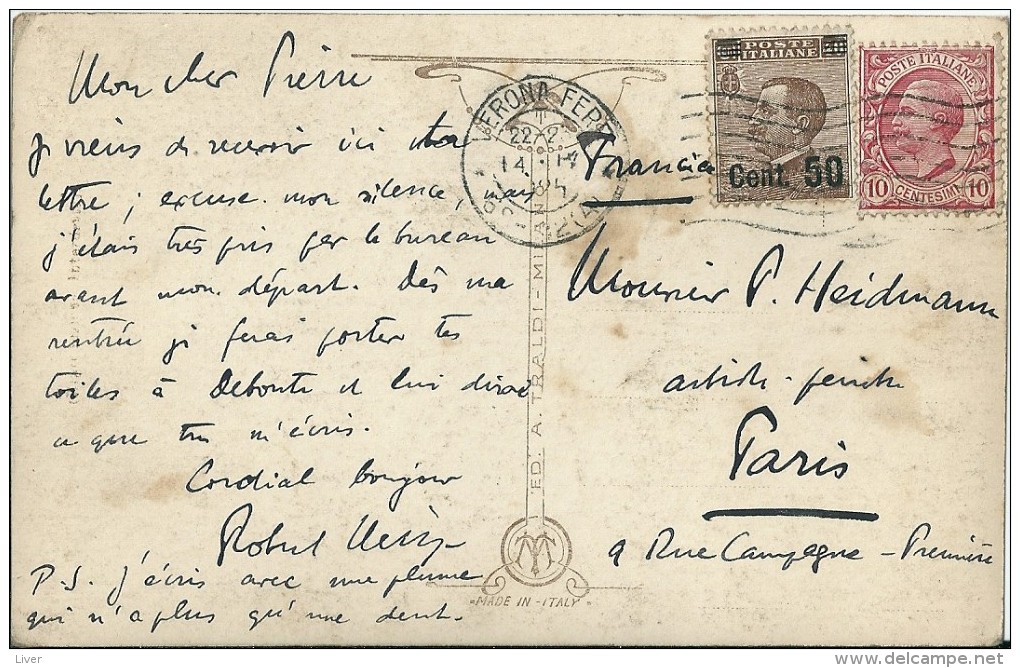 Mon cher Pierre
Je viens de recevoir ici ta
lettre ; excuse mon silence, mais
j'étais très pris par le bureau
avant mon départ. Dès ma
rentrée je ferai porter tes
toiles à et lui dirai
ce que tu m'écris.
Cordial bonjour
Robert
P.S. J'écris avec une plume
qui n'a plus qu'une dent.
VERONA FERR
22-23
14
POSTE
ITALIANE
Cent. 50
POSTE ITALIANE
10 CENTESIMI 10
Francia
Monsieur P. Heidmann
artiste-peintre
Paris
9 Rue Campagne-Première
ED. A. TRALDI-MILANO
"MADE IN ITALY"
Liver
delcampe.net